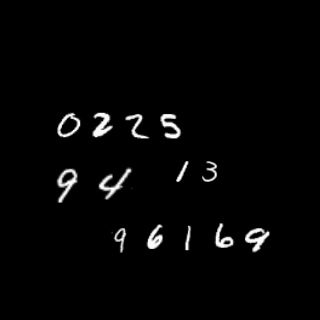 0225
94 13
96169